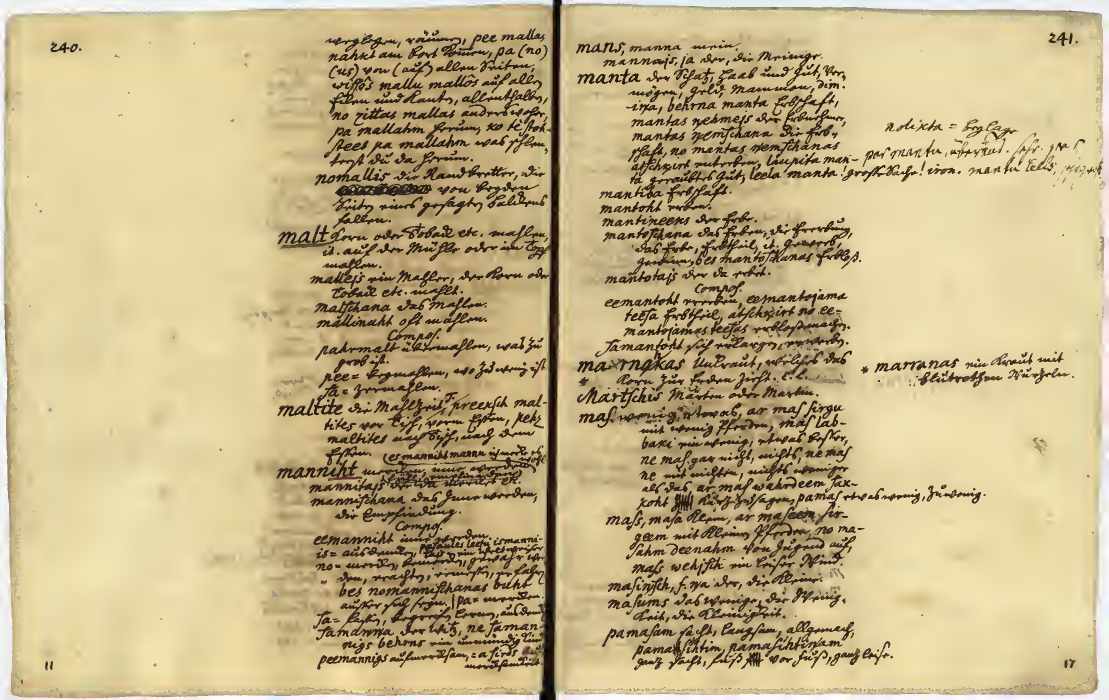 240.
weglegen, räumen, pee mallas
nahkt am Bort kommen, pa (no)
(us) von (auf) allen Seiten,
wissôs mallu mallôs auf allen
Eken und Kanten, allenthalben,
no zittas mallas anderswoher,
pa mallahm herum, ko te stok-
stees pa mallahm was schlen-
terst du da herum.
nomallis die Randbretter, die
von beyden
Seiten eines gesagten Balkens
fallen.
malt Korn oder Toback etc. mahlen,
it. auf der Mühle oder im Topf
mahlen.
mallejs ein Mahler, der Korn oder
Toback etc. mahlt.
malschana das Mahlen.
mallinaht oft mahlen.
Compos.
pahrmalt übermahlen, was zu
grob ist.
pee= beymahlen, wo zu wenig ist
sa= zermahlen.
maltite die Mahlzeit, preeksch mal-
tites vor Tisch, vorm Essen, pehz
maltites nach Tisch, nach dem
Essen.
manniht merken, inne werden
mannitajs der da merket etc.
mannischana das Innewerden,
die Empfindung.
Compos.
eemanniht inne werden.
is= ausdenken,
no= merken, bemerken, gewahr wer-
den, erachten, ermessen, erfahren
bes nomannischanas buht
ausser sich seyn. pa= merken.
sa= fassen, begreifen, lernen, ausdenken
samanna, der Witz, ne saman-
nigs behrns ein unmündig Kind
peemannigs aufmerksam,
11
241.
mans, manna mein.
mannajs, ja der, die Meinige.
manta der Schatz, Haab und Gut, Ver-
mögen, Geld, Mammon, dim.
iņa, behrna manta Erbschaft,
mantas nehmejs der Erbnehmer,
mantas ņemschana die Erb-
schaft, no mantas ņemschanas
atschķirt enterben, laupita man-
ta geraubtes Gut, leela manta! grosse Sache! iron.
nolikta = beylage
par mantu,
mantiba Erbschaft.
mantoht erben.
mantineeks der Erbe.
mantoschana das Erben, die Ererbung,
das Erbe, Erbtheil, it. Gewerb,
Gewinn, bes mantoschanas Erbloß.
mantotajs der da erbet.
Compos.
eemantoht ererben, eemantojama
teesa Erbtheil, atschķirt no ee-
mantojamas teesas erbloß machen.
samantoht sich erlangen, erwerben.
marrngkas Unkraut, welches das
Korn zur Erden zieht.
* marranas ein Kraut mit
blutrothen Wurzeln.
Mártschis Märten oder Martin.
mas wenig, etwas, ar mas sirgu
mit wenig Pferden, mas lab-
baki ein wenig, etwas besser,
ne mas gar nicht, nichts, ne mas
ne mit nichten, nichts weniger
als das, ar mas wahrdeem sak-
koht kurz zu sagen, pamas etwas wenig, zu wenig.
mass, masa klein, ar maseem sir-
geem mit kleinen Pferden, no ma-
sahm deenahm von Jugend auf,
mass wehjsch ein leiser Wind.
masinsch, f. ņa der, die Kleine.
masums das Wenige, die Wenig-
keit, die Kleinigkeit.
pamasam sacht, langsam, allgemach,
pamasihtim, pamasihtiņam
ganz sacht, fuß vor fuß, ganz leise.
17